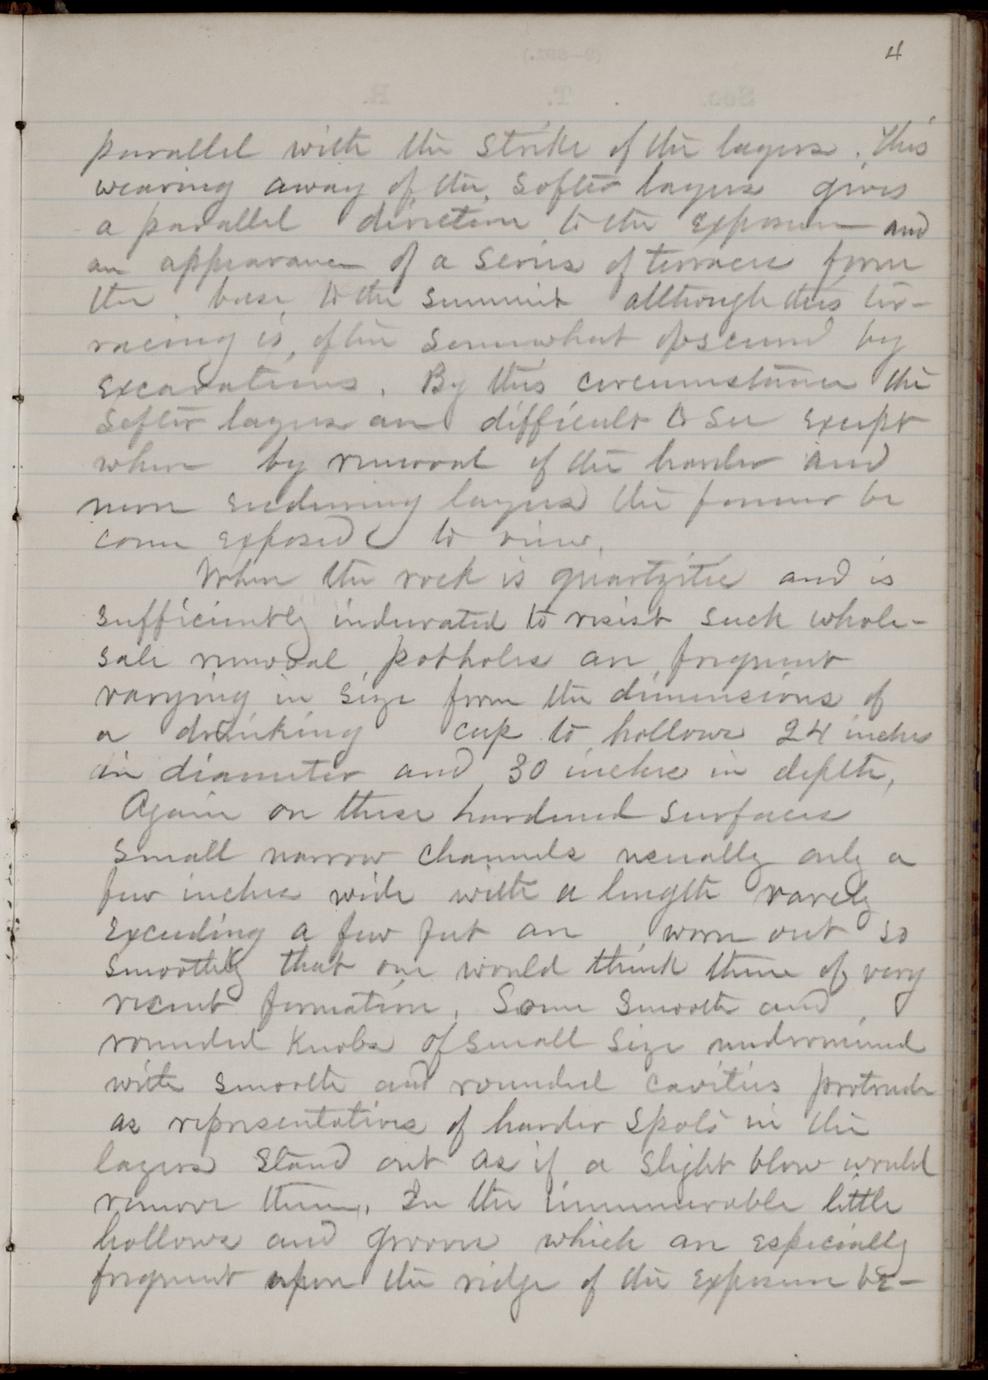 4
parallel with the strike of the layers. This
wearing away of the softer layers gives
a parallel direction to the exposure and
an appearance of a series of terraces from
the base to the summit allthough this ter-
racing is often somewhat obscured by
excavations. By this circumstance the
softer layers are difficult to see except
where by removal of the harder and
more enduring layers the former be
come exposed to view.
When the rock is quartzitic and is
sufficiently indurated to resist such whole-
sale removal potholes are frequent
varying in size from the dimensions of
a drinking cup to hollows 24 inches
in diameter and 30 inches in depth,
Again on these hardened surfaces
small narrow channels usually only a
few inches wide with a length rarely
exceeding a few feet are worn out so
smoothly that one would think them of very
recent formation. Some smooth and
rounded knobs of small size undermined
with smooth and rounded cavities protrude
as representatives of harder spots in the
layers stand out as if a slight blow would
remove them. In the innumerable little
hollows and grooves which are especially
frequent upon the ridge of the exposure be-